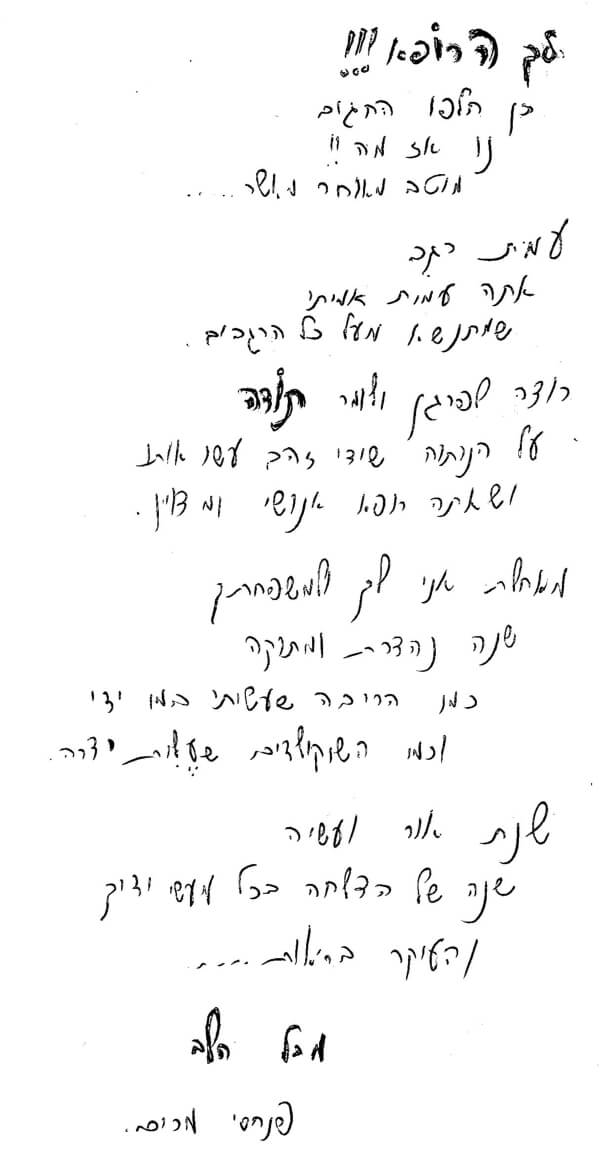 לך הרופא !!!
כן חלפו החגים
נו אז מה !!
מוטב מאוחר מאשר.....
עמית רגב
אתה עמית אמיתי
שמתנשא מעל כל הרגבים.
רוצה לפרגן ולומר תודה
על הניתוח שידי זהב עשו אותו
ושאתה רופא אנושי ומצויין.
מאחלת אני לך ולמשפחתך
שנה נהדרת ומתוקה
כמו הריבה שעשיתי במו ידי
וכמו השוקולדים
שנת אור ועשיה
שנה של הצלחה בכל מעשי ידיך
והעיקר בריאות.....
מכל הלב
פנחסי מרים.